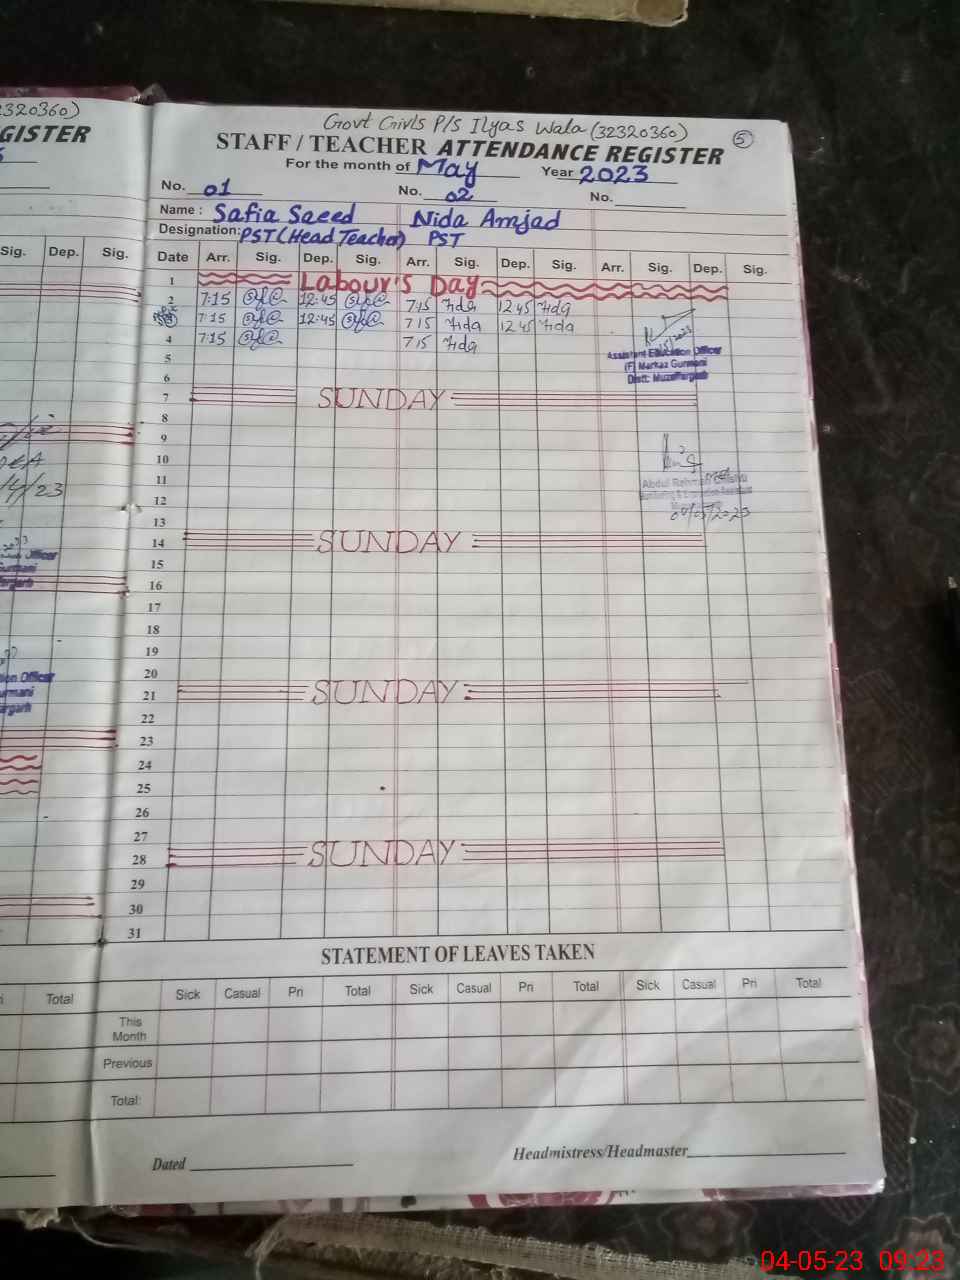 2320360)
GISTER
Govt Girls P/S Ilyas Wala (32320360)
5
STAFF / TEACHER ATTENDANCE REGISTER
For the month of May Year 2023
No. 01 No. 02 No.
Name : Safia Saeed Nida Amjad
Designation: PST (Head Teacher) PST
Sig. Dep. Sig.
Date Arr. Sig. Dep. Sig. Arr. Sig. Dep. Sig. Arr. Sig. Dep. Sig.
1 Labour's Day
2 7:15 12:45 7 15 Nida 12 45 Nida
7:15 12:45 7 15 Nida 12 45 Nida
4 7:15 7 15 Nida
Assistant Education Officer
(F) Markaz Gurmani
Distt: Muzaffargarh
5
6
7 SUNDAY
8
9
10
11
Abdul Rehman
12
04/05/2023
13
14 SUNDAY
15
16
17
18
19
20
21 SUNDAY
22
23
24
25
26
27
28 SUNDAY
29
30
31
STATEMENT OF LEAVES TAKEN
Total
Sick Casual Pri Total Sick Casual Pri Total Sick Casual Pri Total
This Month
Previous
Total:
Dated Headmistress/Headmaster
04-05-23 09:23